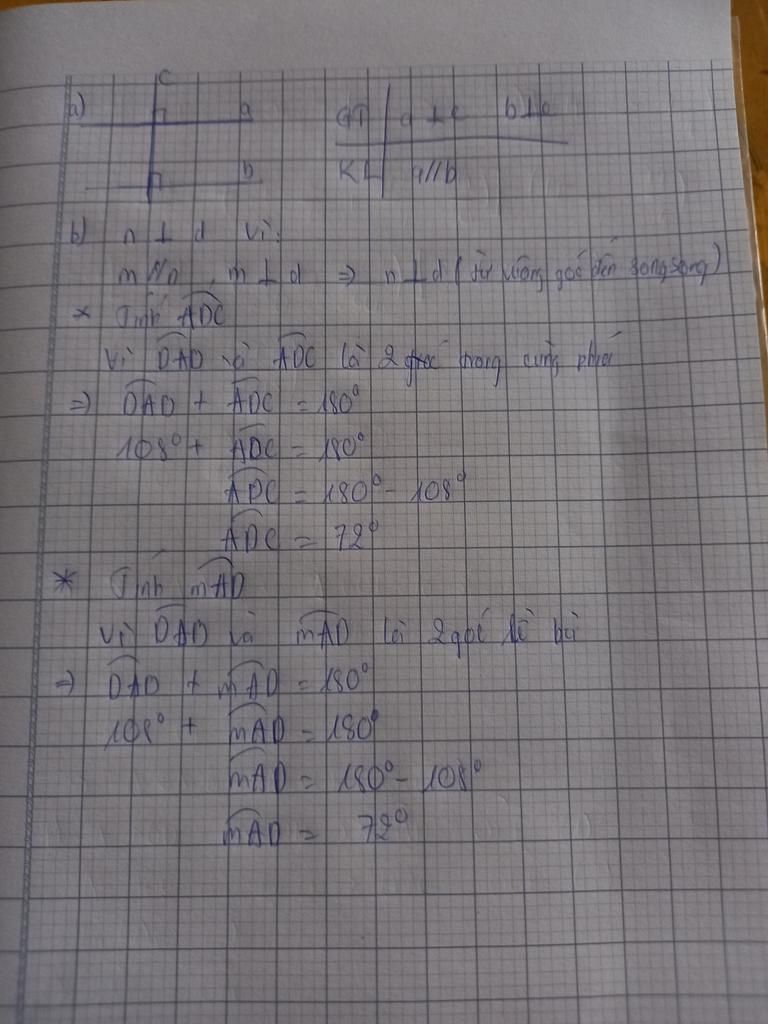 c
a) a GT a ⊥ c b ⊥ c
b KL a//b
b) n ⊥ d vì:
m//n, m ⊥ d => n ⊥ d (từ vuông góc đến song song)
* Tính ADC
Vì DAD và ADC là 2 góc trong cùng phía
=> DAD + ADC = 180°
108° + ADC = 180°
ADC = 180° - 108°
ADC = 72°
* Tính mAD
Vì DAD và mAD là 2 góc kề bù
=> DAD + mAD = 180°
108° + mAD = 180°
mAD = 180° - 108°
mAD = 72°